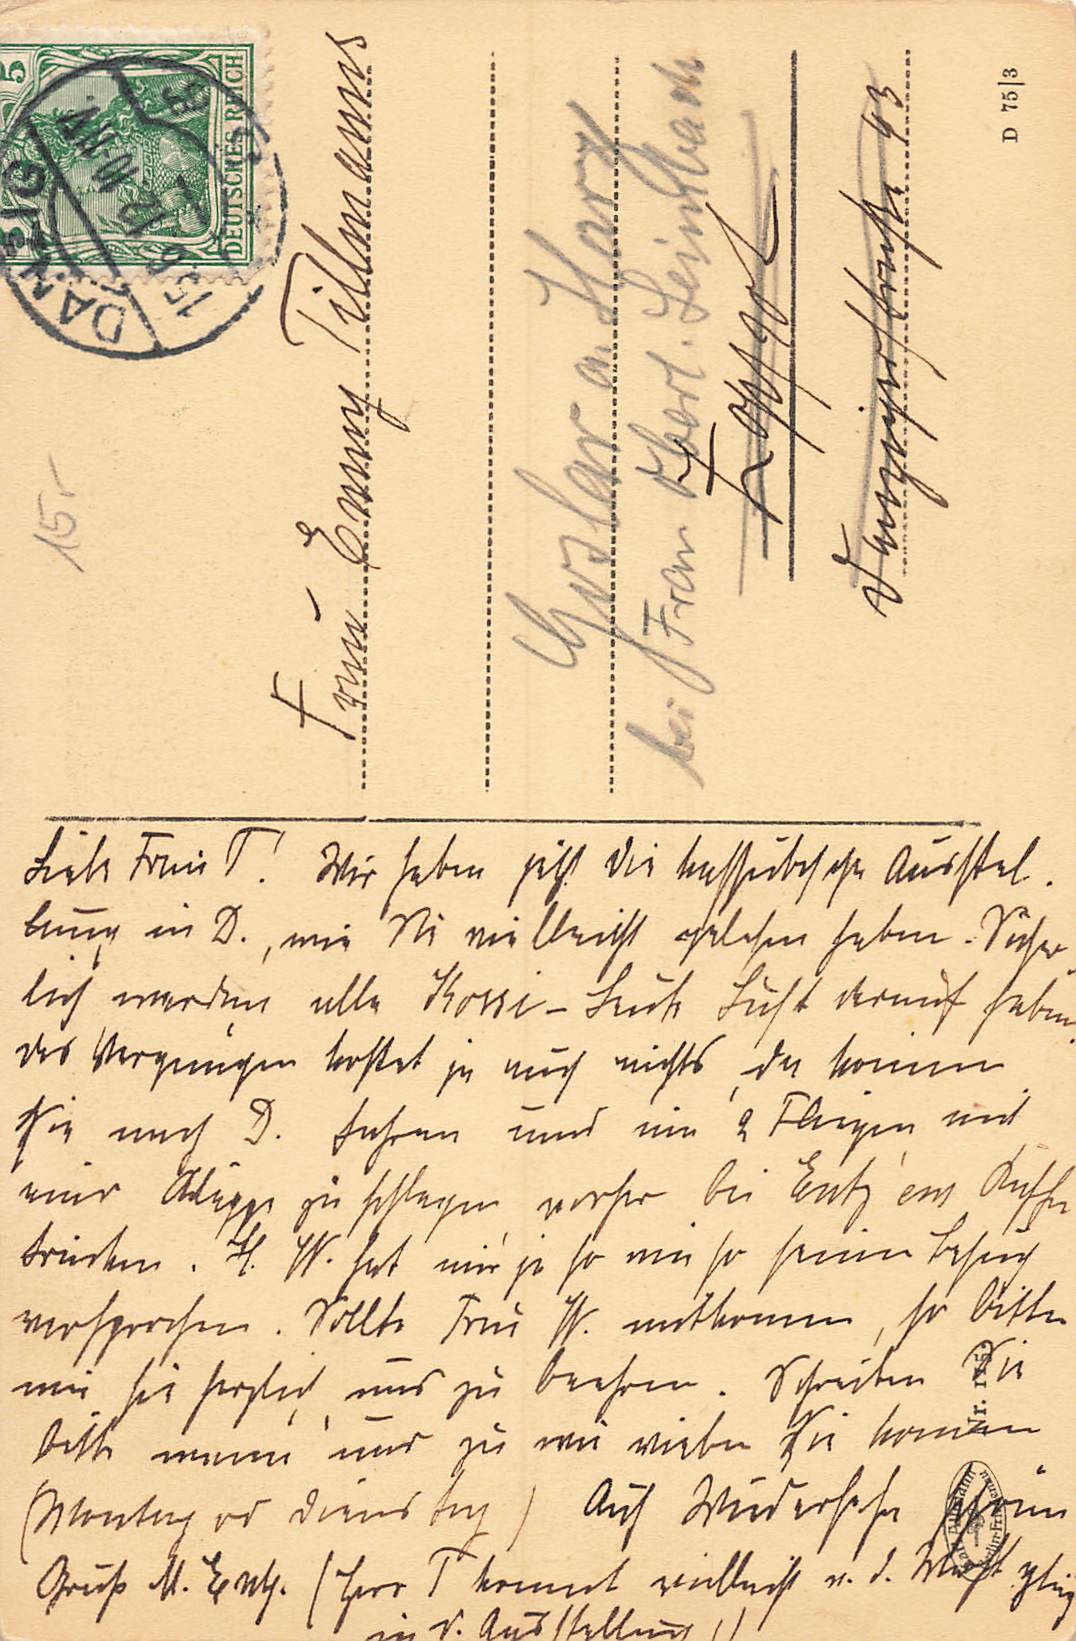 DEUTSCHES REICH
5
DANZIG
15.6.12. 10-11 V.
15,-
Frau Emmy Tillmanns
Goslar a. Harz
bei Frau Oberl.
Zoppot
Danzigerstraße 93
D 75|3
Liebe Frau T! Wir haben jetzt die kassubische Ausstel-
lung in D., wie Sie vielleicht gelesen haben. Sicher-
lich werden alle Kossi-Leute Lust darauf haben,
das Vergnügen kostet ja auch nichts, da können
Sie nach D. fahren und um 2 Fliegen mit
einer Klappe zu schlagen, vorher bei Entz' ens Kaffee
trinken. H. W. hat mir ja so wie so seinen Besuch
versprochen. Sollte Frau W. mitkommen, so bitten
wir sie herzlich, uns zu beehren. Schreiben Sie
bitte wann und zu wie vielen Sie kommen
(Montag od Dienstag) Auf Wiedersehn
Gruß M. Entz. (Herr T kommt vielleicht v. d. gleich
in d. Ausstellung!)